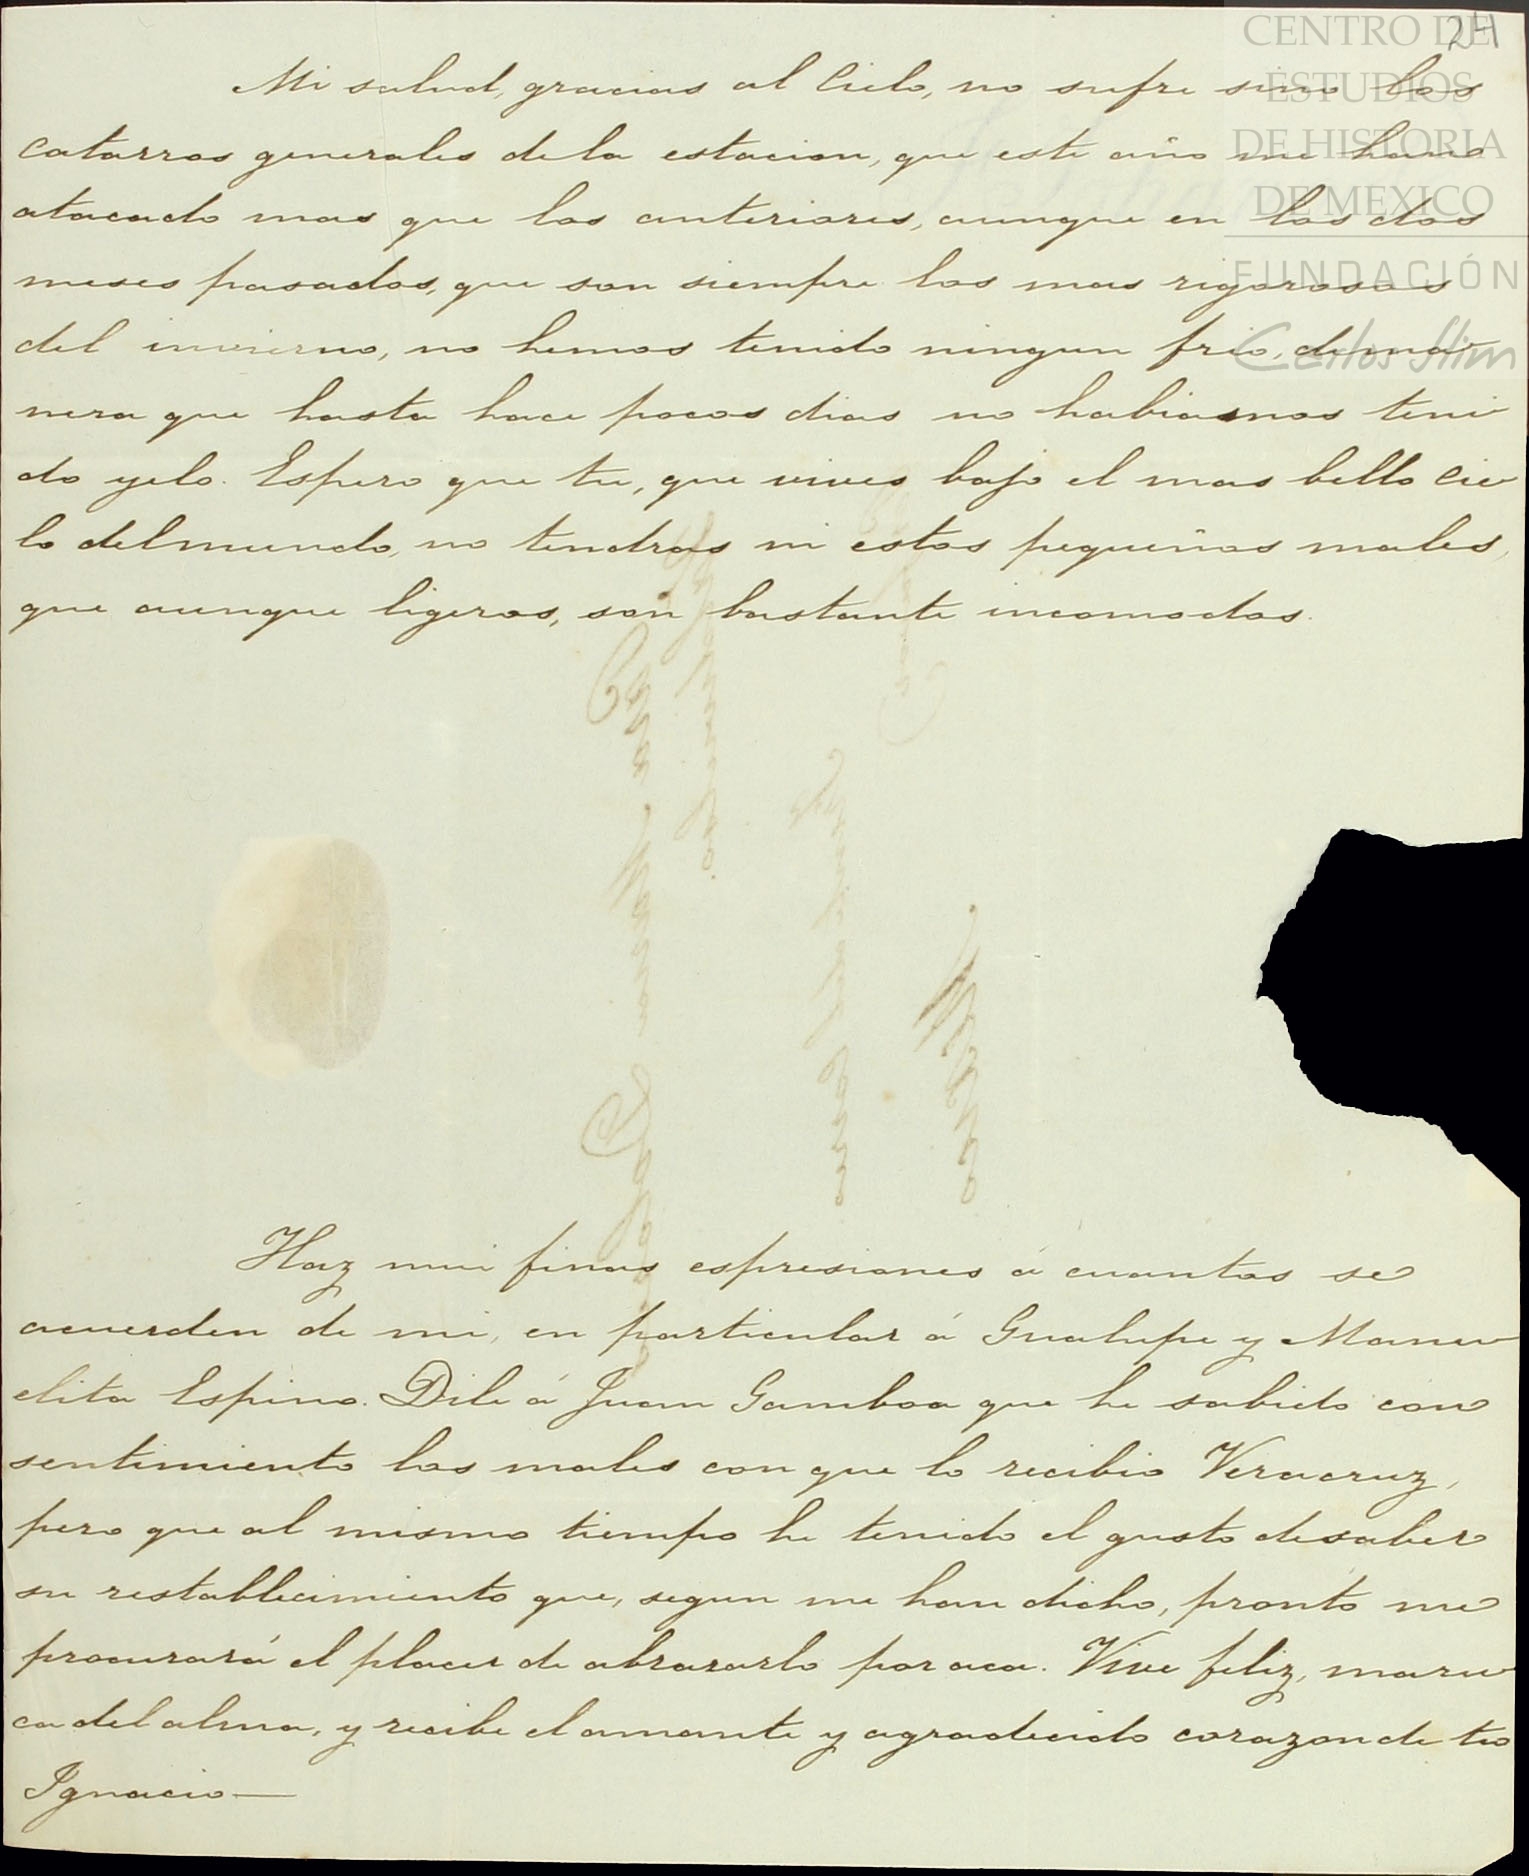 24
CENTRO DE
ESTUDIOS
DE HISTORIA
DE MEXICO
FUNDACIÓN
Carlos Slim
Mi salud, gracias al Cielo, no sufre sino los
catarros generales de la estacion, que este año me han
atacado mas que los anteriores, aunque en los dos
meses pasados, que son siempre los mas rigorosos
del invierno, no hemos tenido ningun frio, de ma-
nera que hasta hace pocos dias no habiamos teni-
do yelo. Espero que tu, que vives bajo el mas bello Cie-
lo del mundo, no tendras ni estos pequeños males,
que aunque ligeros, son bastante incomodos.
Haz mui finas espresiones á cuantos se
acuerden de mi, en particular á Gualupe y Manu-
elita Espino. Dile á Juan Gamboa que he sabido con
sentimiento los males con que lo recibio Veracruz,
pero que al mismo tiempo he tenido el gusto de saber
su restablecimiento que, segun me han dicho, pronto me
procurará el placer de abrazarlo por aca. Vive feliz, maru-
ca del alma, y recibe el amante y agradecido corazon de tu
Ignacio—